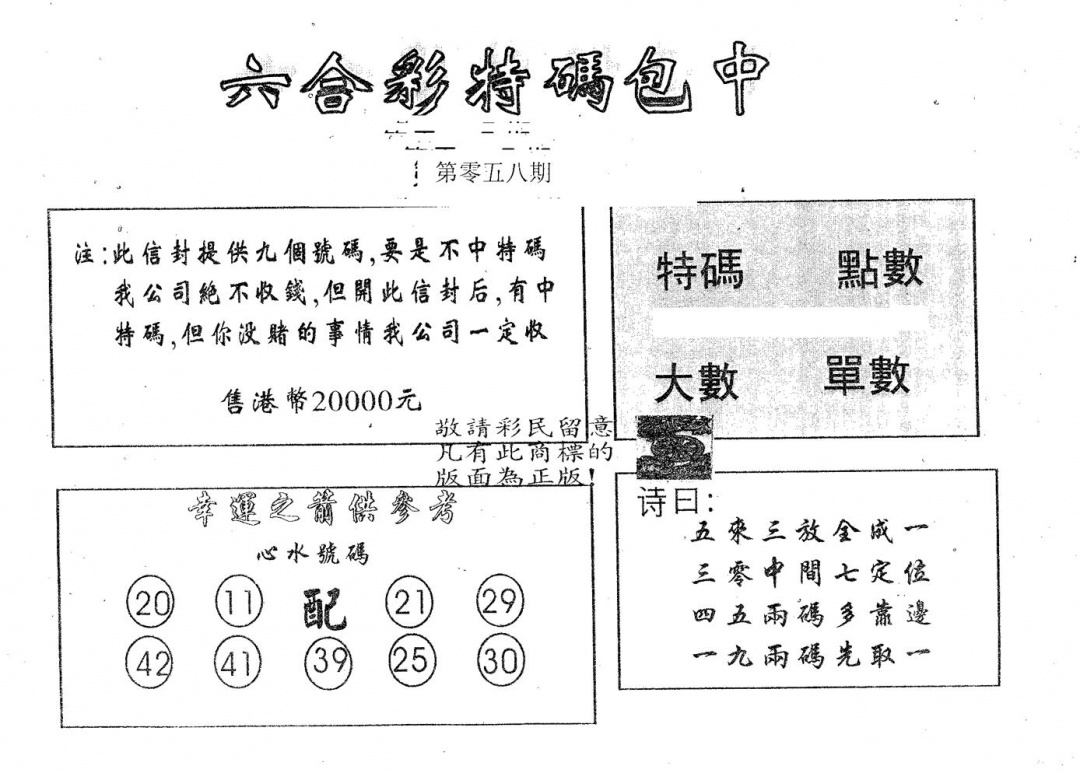 六合彩特碼包中
第零五八期
注:此信封提供九個號碼,要是不中特碼
我公司絕不收錢,但開此信封后,有中
特碼,但你没賭的事情我公司一定收
售港幣20000元
特碼 點數
大數 單數
敬請彩民留意
凡有此商標的
版面為正版!
幸運之箭供參考
心水號碼
20 11 配 21 29
42 41 39 25 30
诗曰:
五來三放全成一
三零中間七定位
四五兩碼多靠邊
一九兩碼先取一